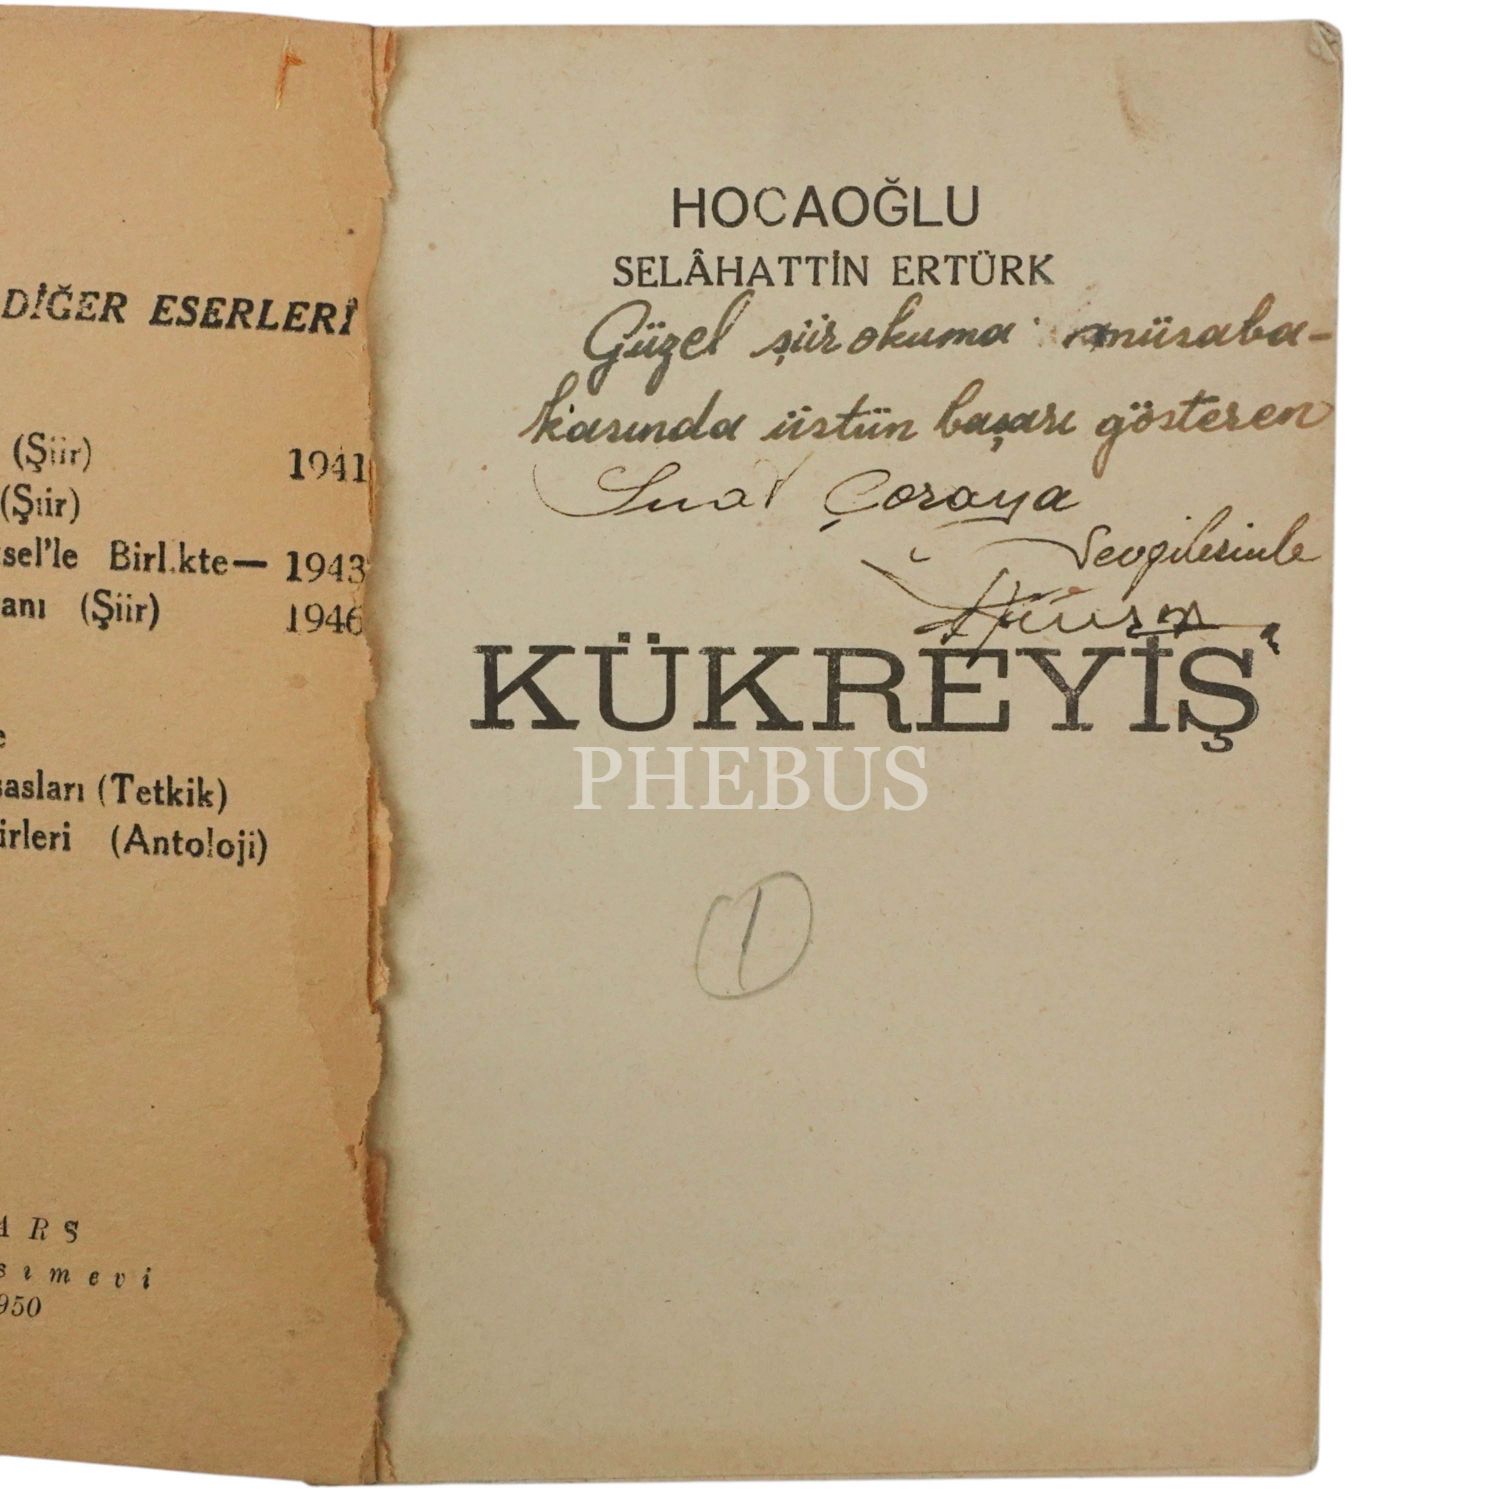 DİĞER ESERLERİ
(Şiir) 1941
(Şiir)
sel'le Birlikte— 1943
anı (Şiir) 1946
e
sasları (Tetkik)
irleri (Antoloji)
ARS
sımevi
950
HOCAOĞLU
SELÂHATTİN ERTÜRK
Güzel şiir okuma müsaba-
kasında üstün başarı gösteren
Suat Çoraya
Sevgilesinle
KÜKREYİŞ
PHEBUS
1